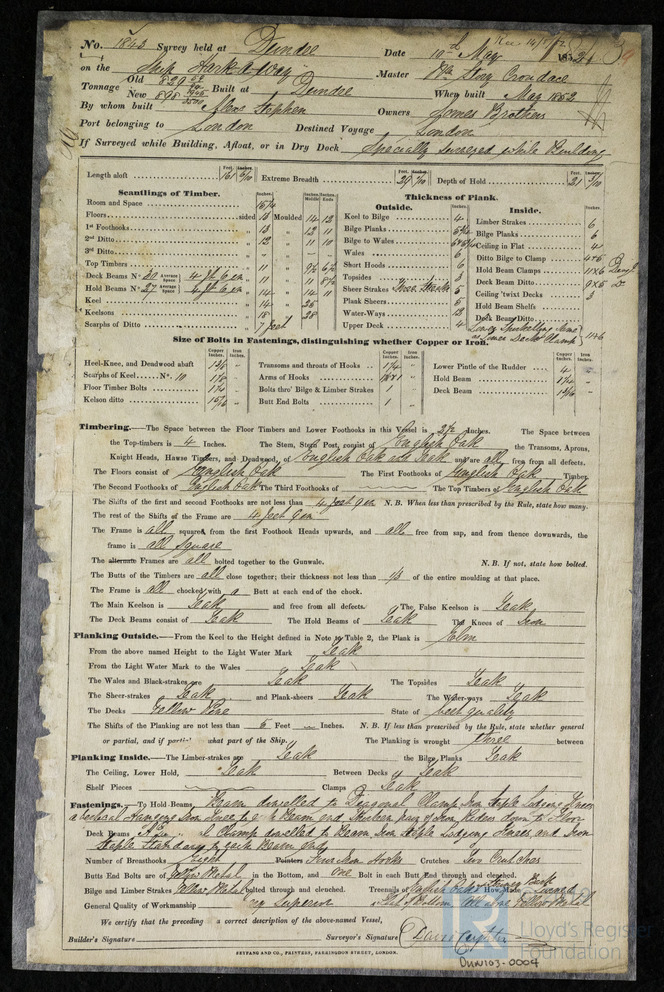 No. 1843 Survey held at Dundee Date 10th May 1852
on the Ship Harkaway Master Wm Stoy Croudace
Tonnage Old 829 New 898 Built at Dundee When built May 1852
By whom built Alexr Stephen Owners Somes Brothers
Port belonging to London Destined Voyage London
If Surveyed while Building, Afloat, or in Dry Dock Specially surveyed while Building
Length aloft Extreme Breadth Depth of Hold
Scantlings of Timber. Thickness of Plank.
Outside. Inside.
Room and Space
Floors sided Moulded
1st Foothooks
2nd Ditto
3rd Ditto
Top Timbers
Deck Beams No. 30 Average Space 4 ft 6 in
Hold Beams No. 27 Average Space 4 ft 6 in
Keel
Keelsons
Scarphs of Ditto 7 feet
Keel to Bilge 4
Bilge Planks
Bilge to Wales
Wales 6
Short Hoods 6
Topsides
Sheer Strakes Three Strakes 5
Plank Sheers
Water-Ways
Upper Deck 4
Limber Strakes 6
Bilge Planks 6
Ceiling in Flat 4
Ditto Bilge to Clamp
Hold Beam Clamps 11x6
Deck Beam Ditto 9x5
Ceiling 'twixt Decks 3
Hold Beam Shelfs
Deck Beam Ditto
Size of Bolts in Fastenings, distinguishing whether Copper or Iron.
Heel-Knee, and Deadwood abaft
Scarphs of Keel No. 10
Floor Timber Bolts
Kelson ditto
Transoms and throats of Hooks
Arms of Hooks
Bolts thro' Bilge & Limber Strakes 1
Butt End Bolts 1
Lower Pintle of the Rudder 4
Hold Beam
Deck Beam
Timbering.—The Space between the Floor Timbers and Lower Foothooks in this Vessel is 2½ Inches. The Space between
the Top-timbers is 4 Inches. The Stem, Stern Post, consist of English Oak the Transoms, Aprons,
Knight Heads, Hawse Timbers, and Deadwood, of English Oak and Teak and are all free from all defects.
The Floors consist of English Oak The First Foothooks of English Oak Timber
The Second Foothooks of English Oak The Third Foothooks of The Top Timbers of English Oak
The Shifts of the first and second Foothooks are not less than 4 feet 9 in N.B. When less than prescribed by the Rule, state how many.
The rest of the Shifts of the Frame are 4 feet 9 in
The Frame is all squared, from the first Foothook Heads upwards, and all free from sap, and from thence downwards, the
frame is all Square
The alternate Frames are all bolted together to the Gunwale. N.B. If not, state how bolted.
The Butts of the Timbers are all close together; their thickness not less than 1/3 of the entire moulding at that place.
The Frame is all chocked, with a Butt at each end of the chock.
The Main Keelson is Teak and free from all defects. The False Keelson is Teak
The Deck Beams consist of Teak The Hold Beams of Teak The Knees of Iron
Planking Outside.—From the Keel to the Height defined in Note to Table 2, the Plank is Elm
From the above named Height to the Light Water Mark Teak
From the Light Water Mark to the Wales Teak
The Wales and Black-strakes are Teak The Topsides Teak
The Sheer-strakes Teak and Plank-sheers Teak The Water-ways Teak
The Decks Yellow Pine State of best quality
The Shifts of the Planking are not less than 5 Feet Inches. N.B. If less than prescribed by the Rule, state whether general
or partial, and if partial what part of the Ship. The Planking is wrought three between
Planking Inside.—The Limber-strakes are Teak the Bilge Planks Teak
The Ceiling, Lower Hold, Teak Between Decks Teak
Shelf Pieces Clamps Teak
Fastenings.—To Hold Beams, Beam dowelled to Diagonal Clamp, Iron Staple Lodging Knees
a vertical Hanging Iron Knee to each Beam end Thirteen pair of Iron Riders down to Floor
Deck Beams Clamp dowelled to Beam, Iron Staple Lodging Knees and Iron
Staple Standard to each Beam only
Number of Breasthooks Eight Pointers Four Iron Hooks Crutches Two Crutches
Butts End Bolts are of Yellow Metal in the Bottom, and one Bolt in each Butt End through and clenched.
Bilge and Limber Strakes Yellow Metal bolted through and clenched. Treenails of English Oak How Made Turned
General Quality of Workmanship very Superior
We certify that the preceding is a correct description of the above-named Vessel,
Builder's Signature Surveyor's Signature
SEYFANG AND CO., PRINTERS, FARRINGDON STREET, LONDON.
Lloyd's Register
Foundation
DUN103-0004